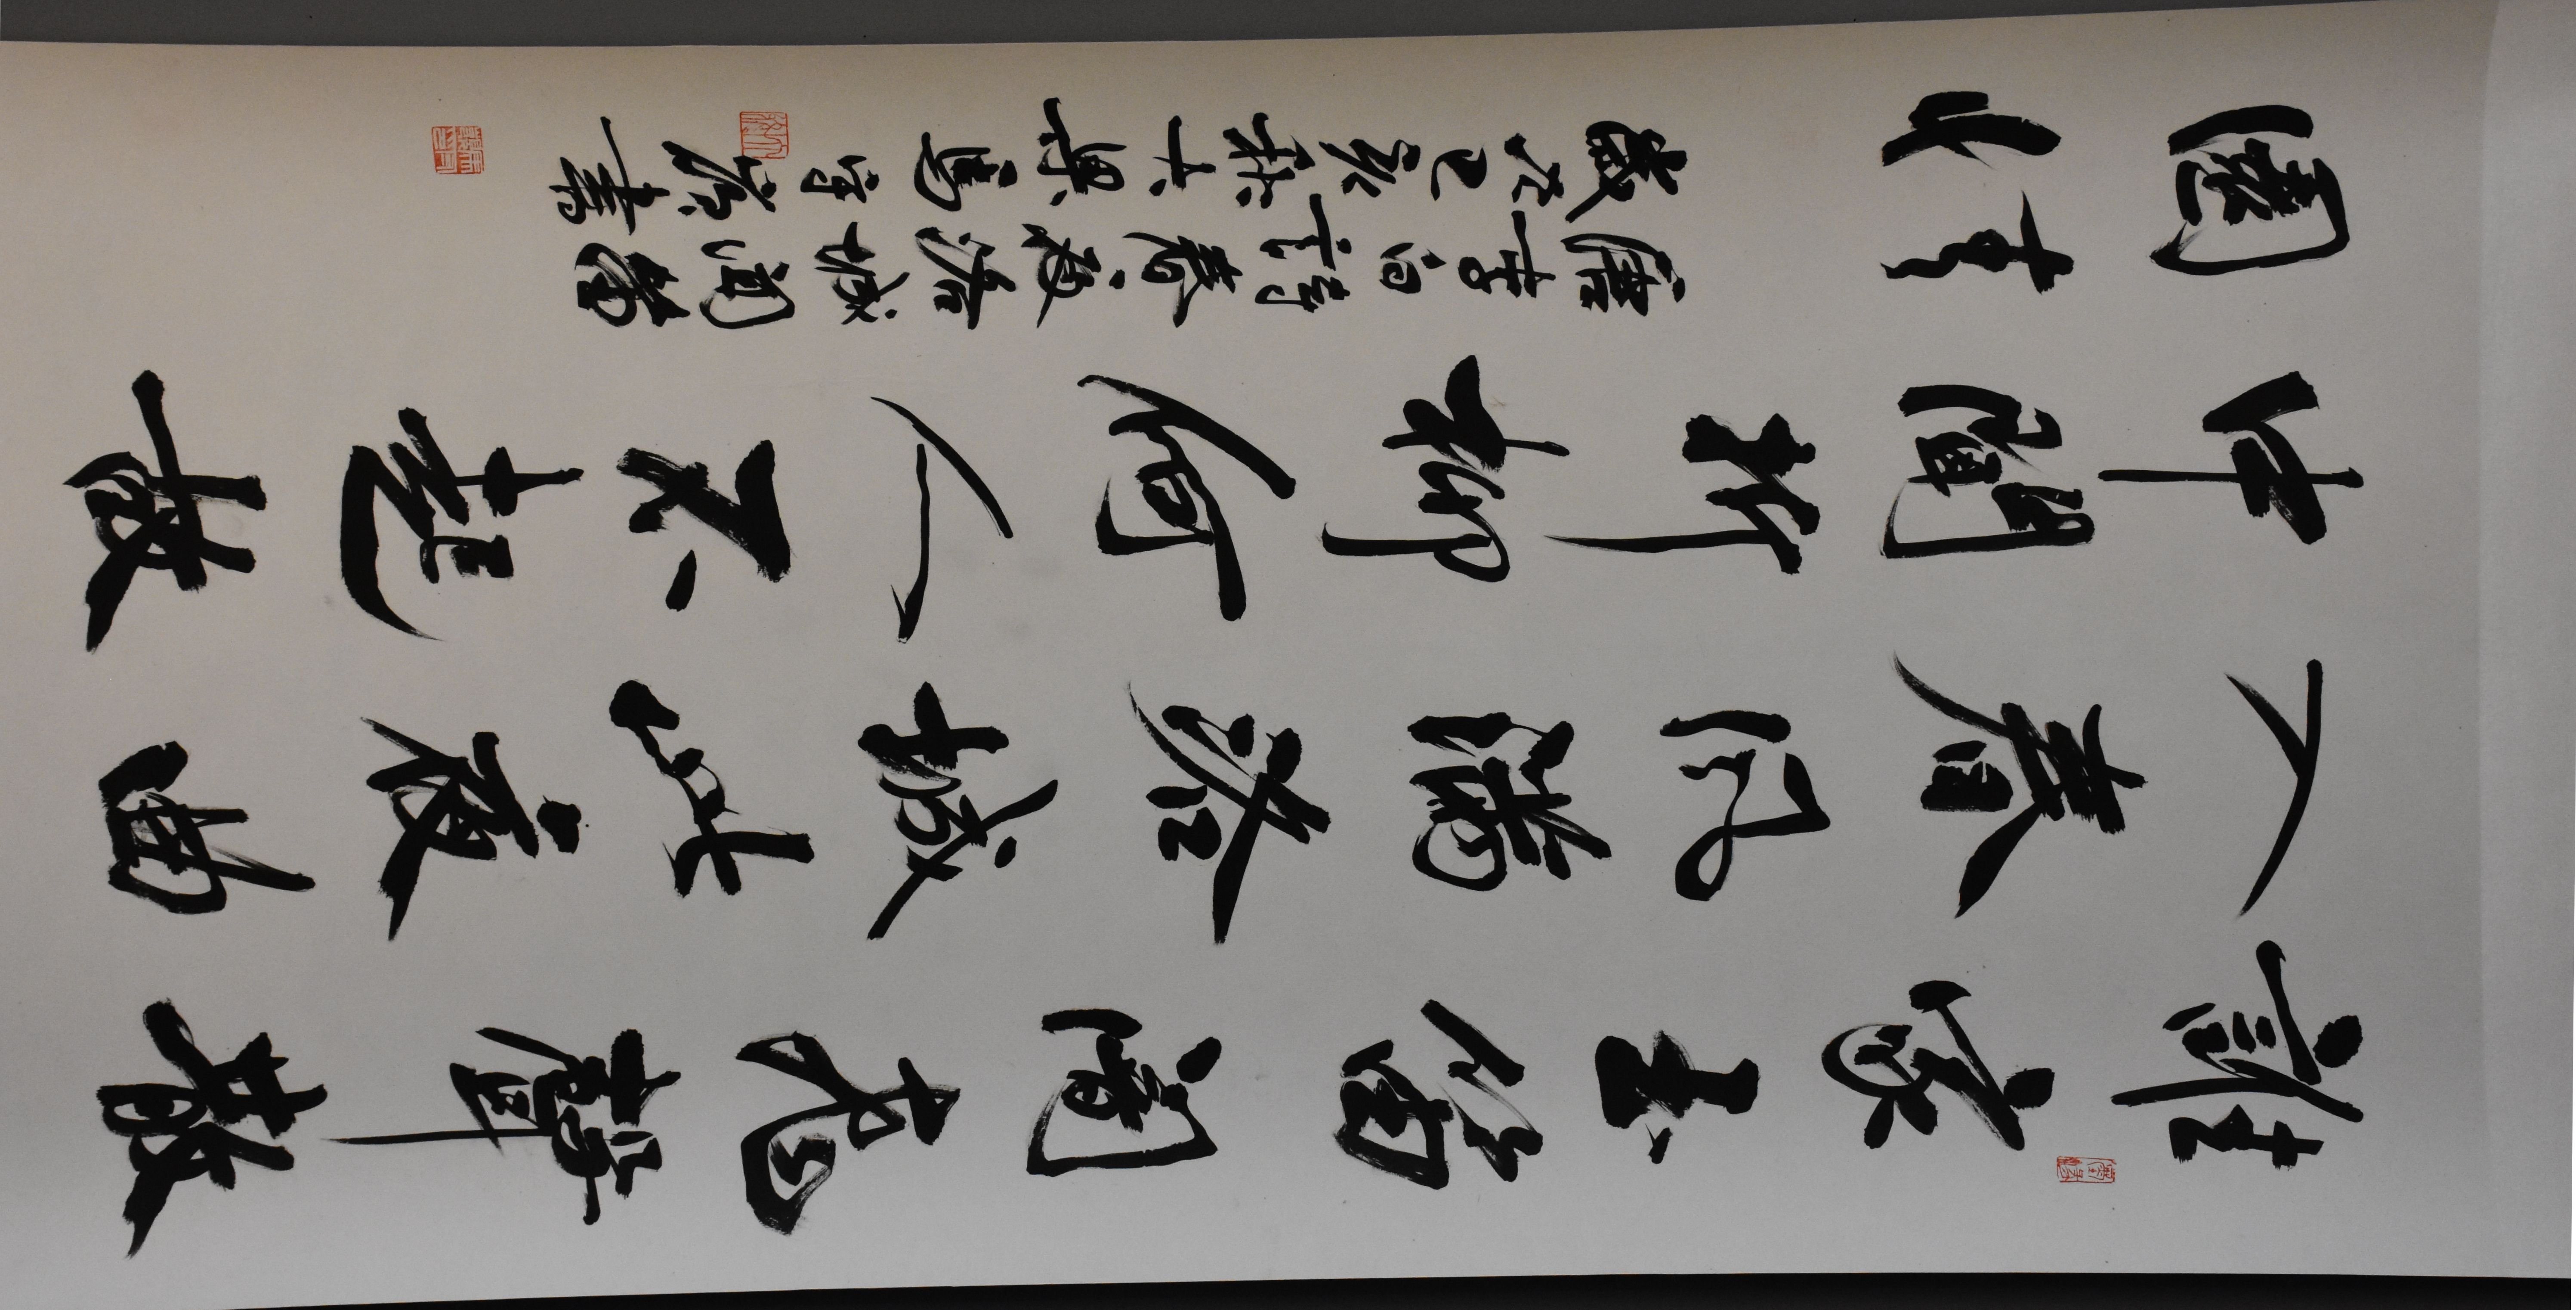 誰家玉笛闇飛聲散
入春風滿洛城此夜曲
中聞折柳何人不起故
園情
唐李白詩春夜洛城聞笛
歲在己亥秋
書